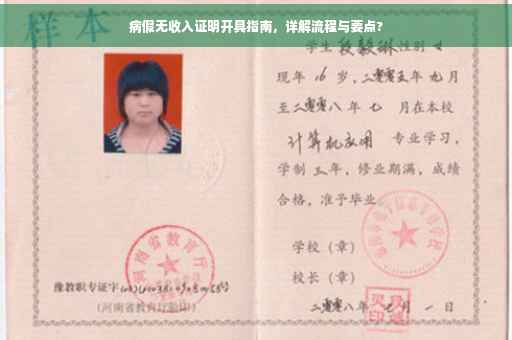 病假无收入证明开具指南，详解流程与要点？
样本
学生 段毅琳 性别 女
现年 16 岁，二零零五年 九 月
至二零零八年 七 月在本校
计算机应用 专业学习，
学制 三 年，修业期满，成绩
合格，准予毕业
学校（章）
校长（章）
二零零八年 月 一 日
河南省教育厅
豫教职专证字
（河南省教育厅验印）